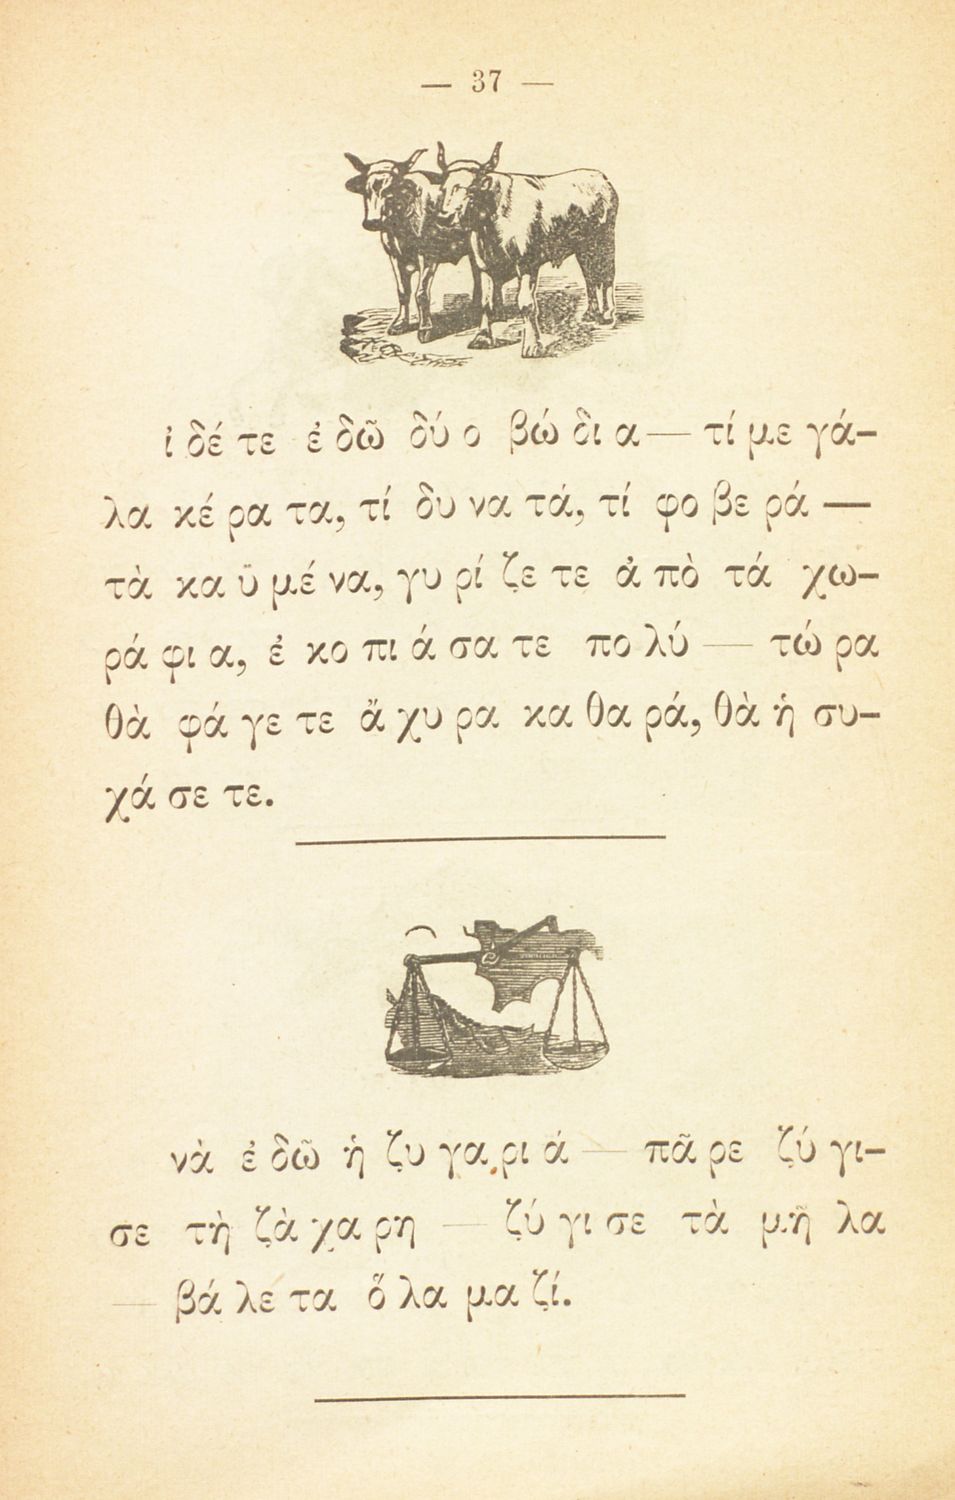 — 37 —
ἰ δέ τε ἐ δῶ δύ ο βώ δι α — τί με γά-
λα κέ ρα τα, τί δυ να τά, τί φο βε ρά —
τὰ κα ϋ μέ να, γυ ρί ζε τε ἀ πὸ τά χω-
ρά φι α, ἐ κο πι ά σα τε πο λύ — τώ ρα
θὰ φά γε τε ἄ χυ ρα κα θα ρά, θὰ ἡ συ-
χά σε τε.
νὰ ἐ δῶ ἡ ζυ γα ρι ά — πᾶ ρε ζύ γι-
σε τὴ ζὰ χα ρη — ζύ γι σε τὰ μῆ λα
— βά λε τα ὅ λα μα ζί.